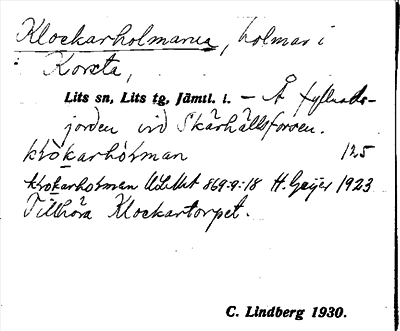 Klockarholmarna, holmar i
Korsta,
Lits sn, Lits tg, Jämtl. l. — Å fyllnads-
jorden vid Skärhällsforsen.
125
869:9:18 H. Geijer 1923
Tillhöra Klockartorpet.
C. Lindberg 1930.